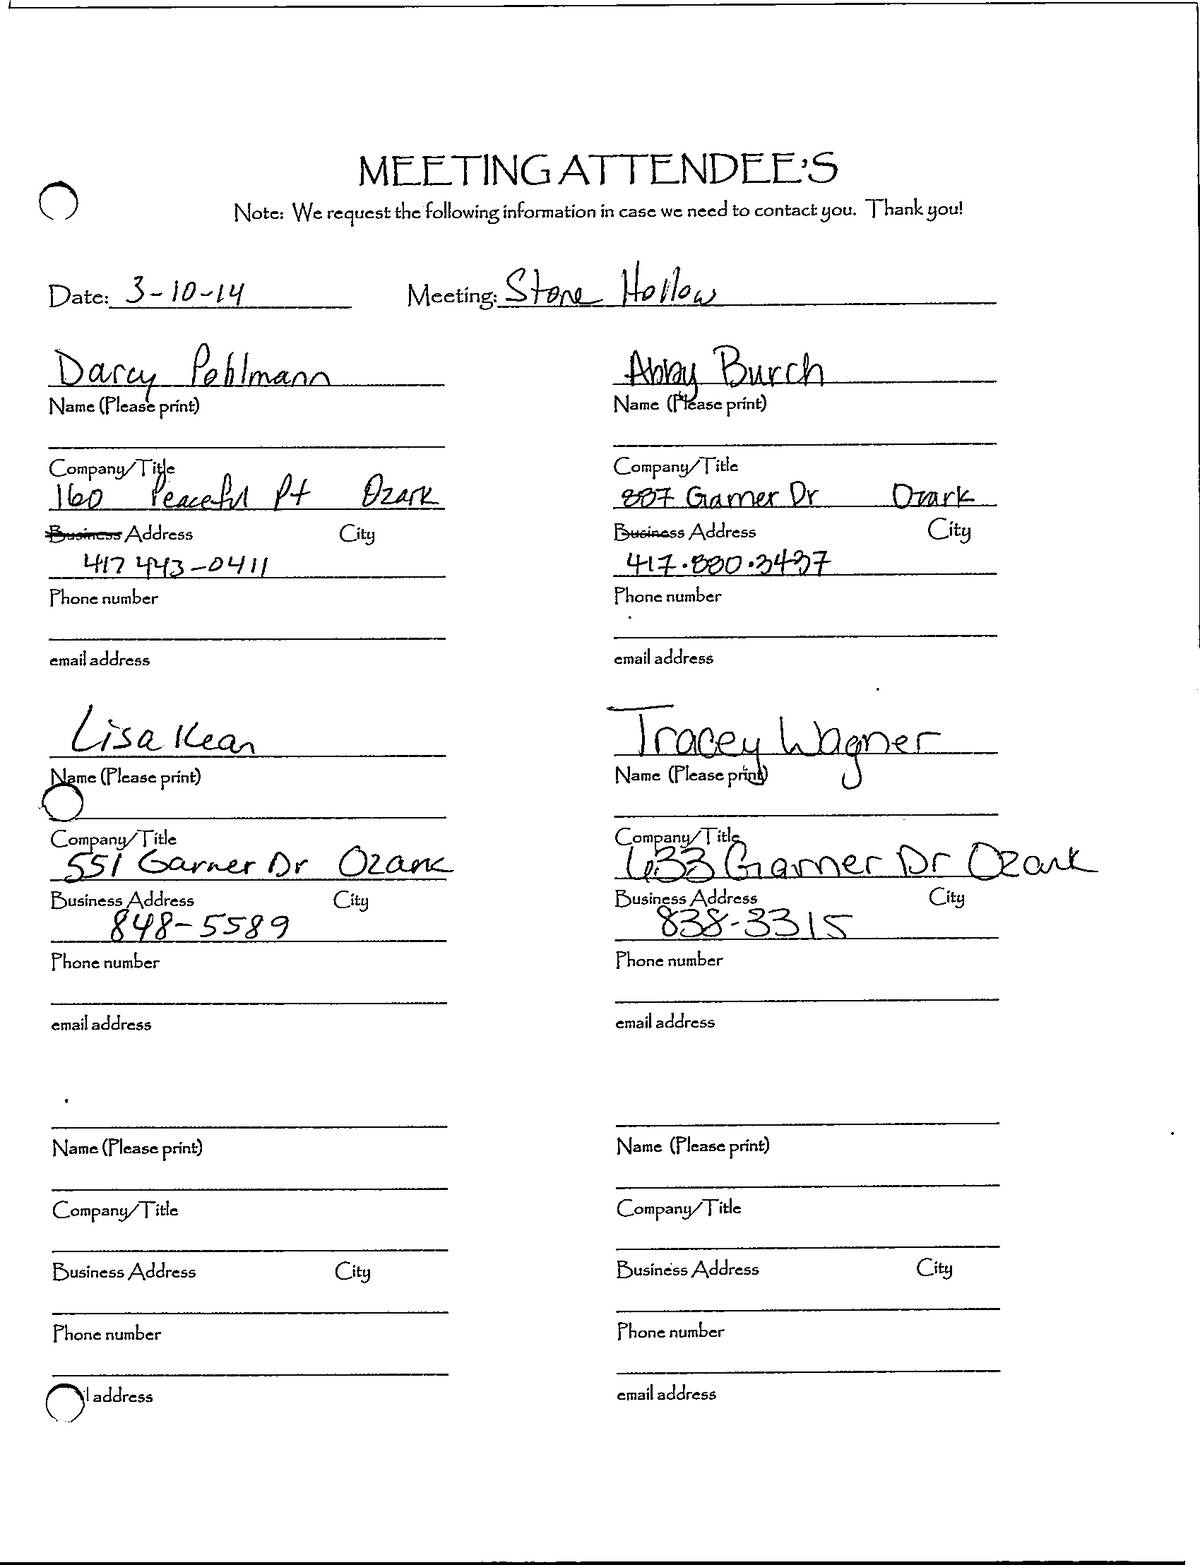 MEETING ATTENDEE'S
Note: We request the following information in case we need to contact you. Thank you!
Date: 3-10-14 Meeting: Stone Hollow
Darcy Pohlmann
Name (Please print)
Company/Title
160 Peaceful Pt Ozark
Business Address City
417 443-0411
Phone number
email address
Abby Burch
Name (Please print)
Company/Title
887 Garner Dr Ozark
Business Address City
417.880.3437
Phone number
email address
Lisa Kean
Name (Please print)
Company/Title
551 Garner Dr Ozark
Business Address City
848-5589
Phone number
email address
Tracey Wagner
Name (Please print)
Company/Title
633 Garner Dr Ozark
Business Address City
838-3315
Phone number
email address
Name (Please print)
Company/Title
Business Address City
Phone number
l address
Name (Please print)
Company/Title
Business Address City
Phone number
email address